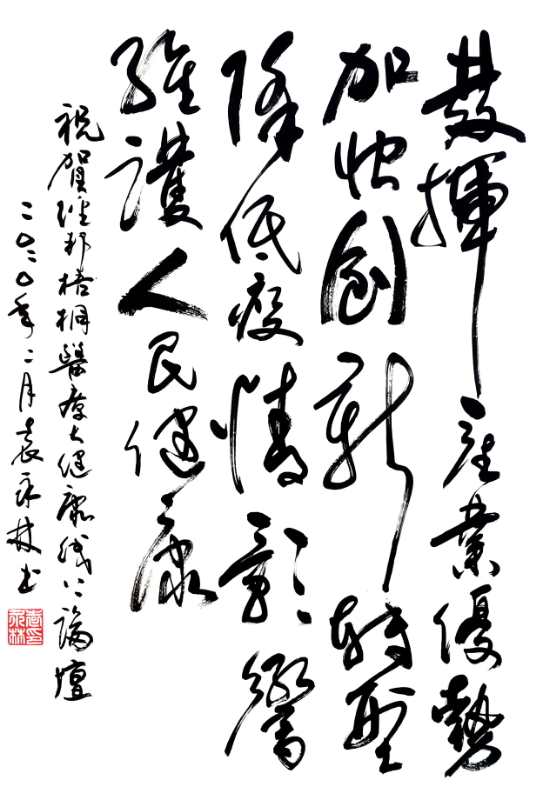 發揮產業優勢
加快創新轉型
降低疫情影響
維護人民健康
祝賀維邦梧桐醫療大健康線上論壇
二〇二〇年二月袁永林書